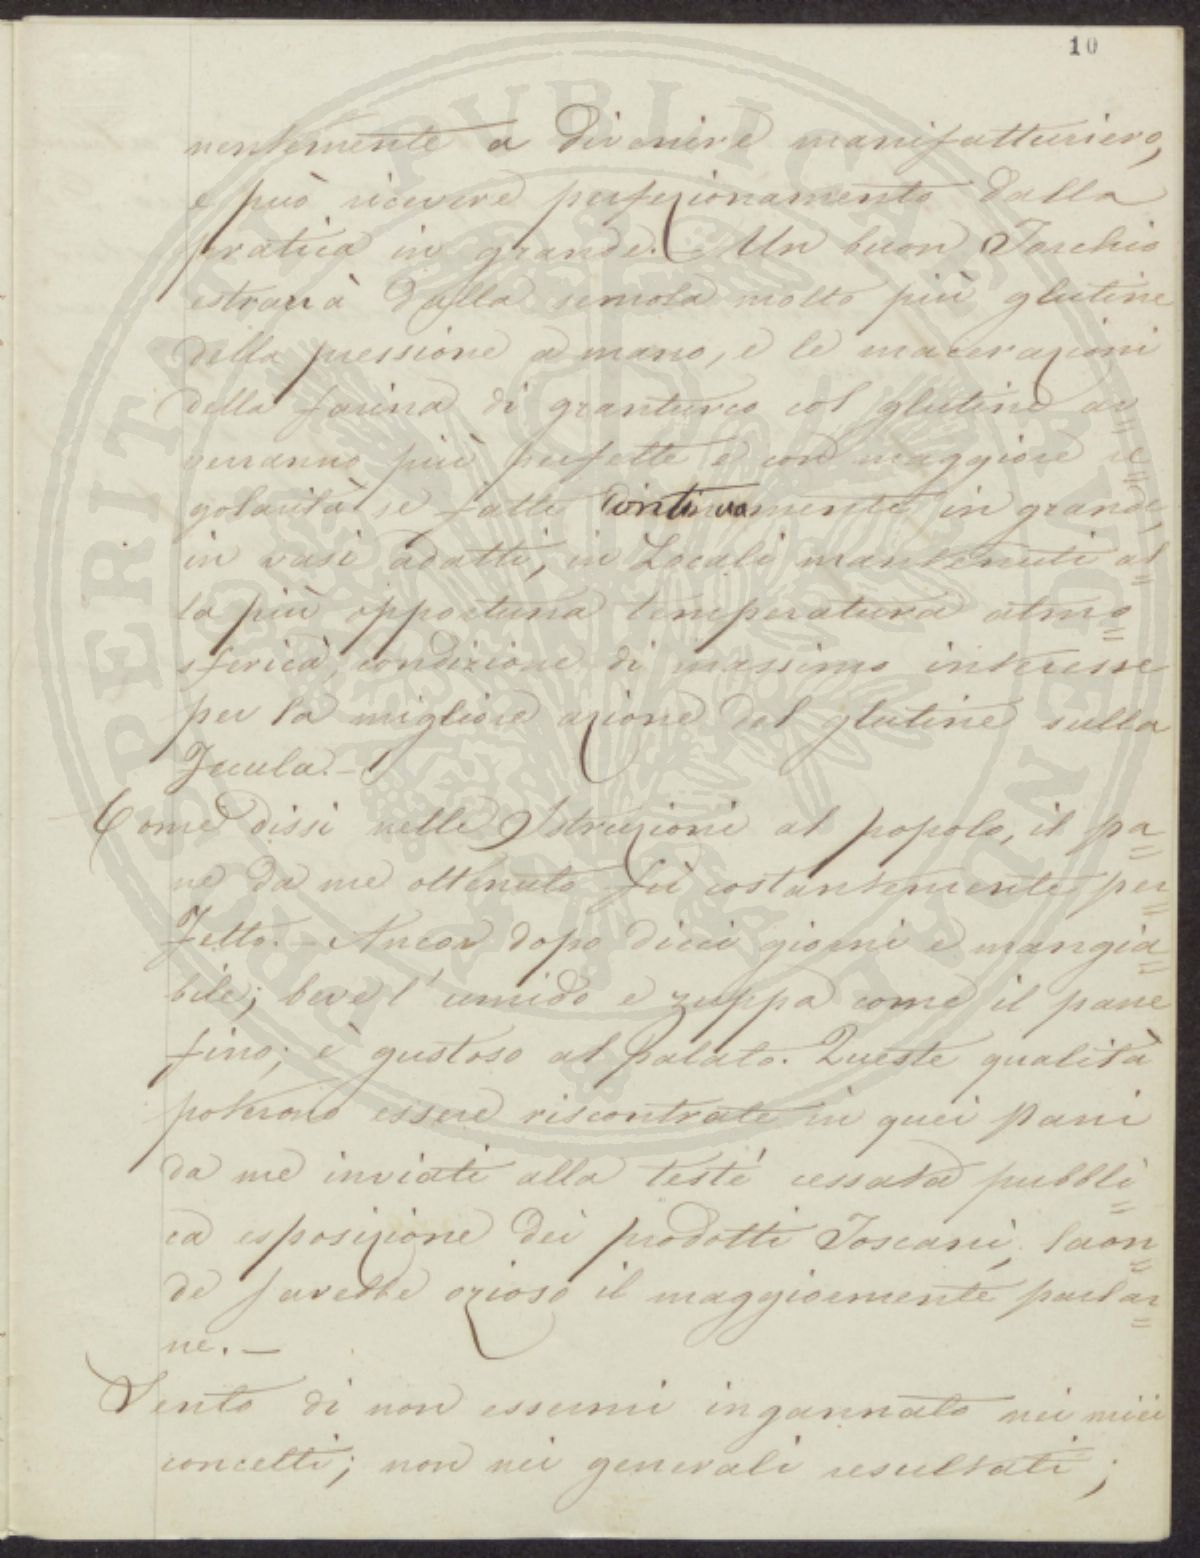 10
nentemente a divenire manifatturiero,
e può ricevere perfezionamento dalla
pratica in grande. Un buon Torchio
estrarrà dalla semola molto più glutine
della pressione a mano, e le macerazioni
della farina di granturco col glutine av=
verranno più perfette e con maggiore re=
golarità se fatte continuamente in grande,
in vasi adatti, in Locali mantenuti al=
la più opportuna temperatura atmo=
sferica, condizione di massimo interesse
per la migliore azione del glutine sulla
Fecula.—
Come dissi nelle Istruzioni al popolo, il pa=
ne da me ottenuto fù costantemente per=
fetto.— Ancor dopo dieci giorni e mangia=
bile; beve l'umido e zuppa come il pane
fino; è gustoso al palato. Queste qualità
poterono essere riscontrate in quei pani
da me inviati alla testé cessata pubbli=
ca esposizione dei prodotti Toscani, laon=
de sarebbe ozioso il maggiormente parlar=
ne.—
Sento di non essermi ingannato nei miei
concetti; non nei generali resultati;